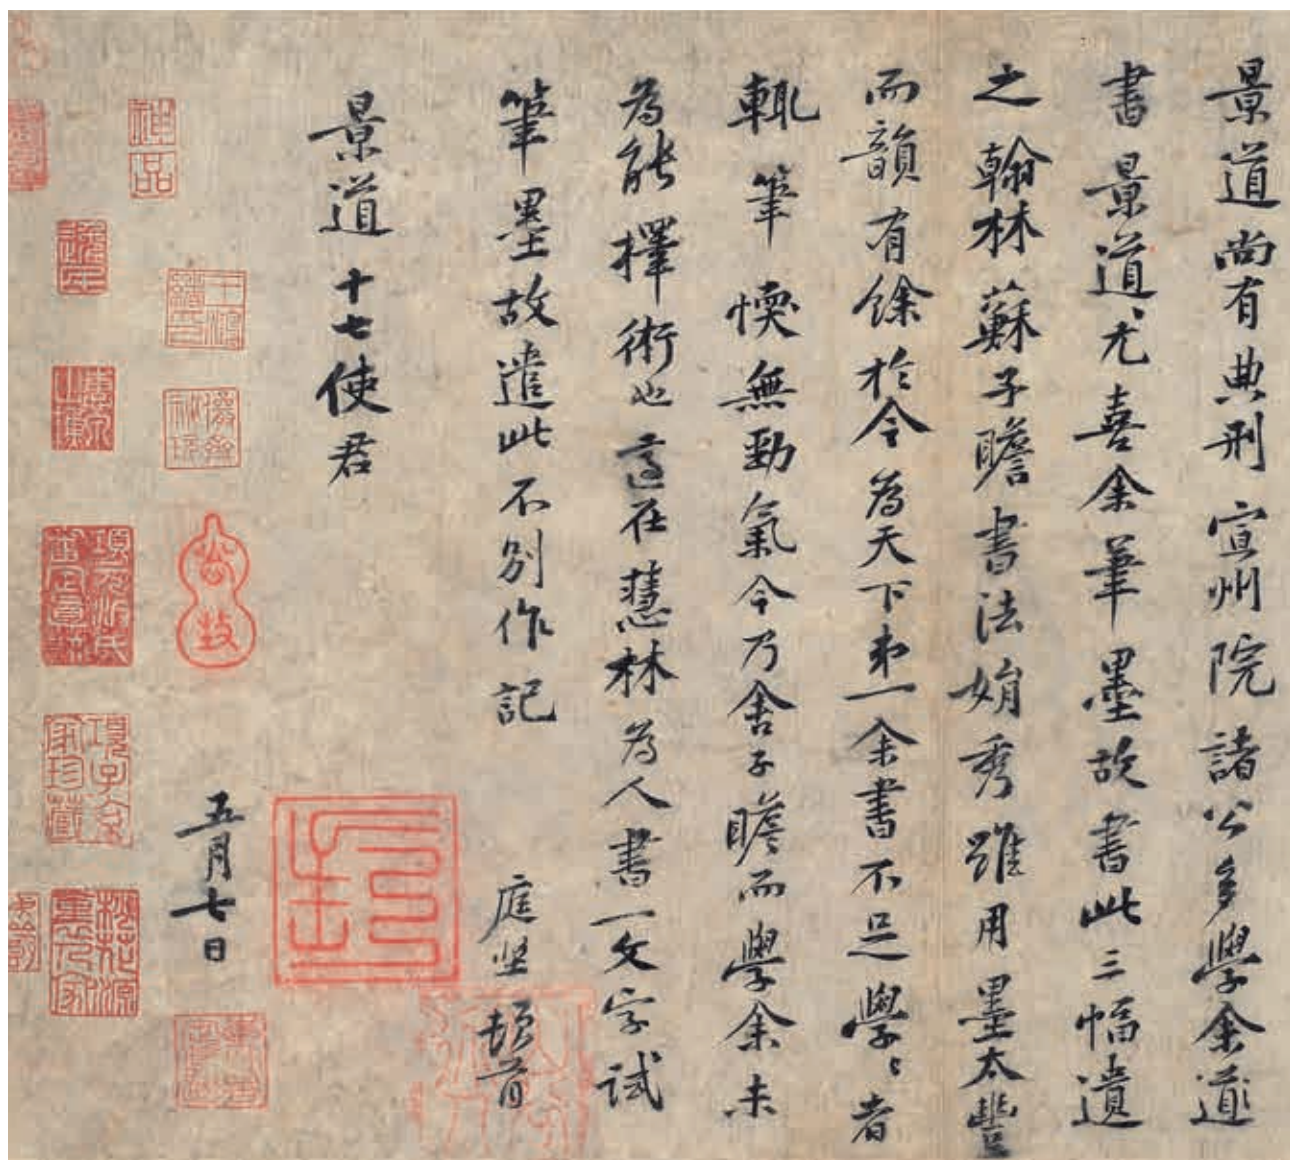 景道尚有典刑宣州院諸公多學余道
書景道〻尤喜余筆墨故書此三幅遺
之翰林蘇子瞻書法娟秀雖用墨太豐
而韻有餘於今為天下弟一余書不足學〻者
輒筆愞無勁氣今乃舍子瞻而學余未
為能擇術也適在慧林為人書一文字試
筆墨故遣此不別作記 庭堅頓首
景道十七使君
五月七日
神品
項子京家珍藏